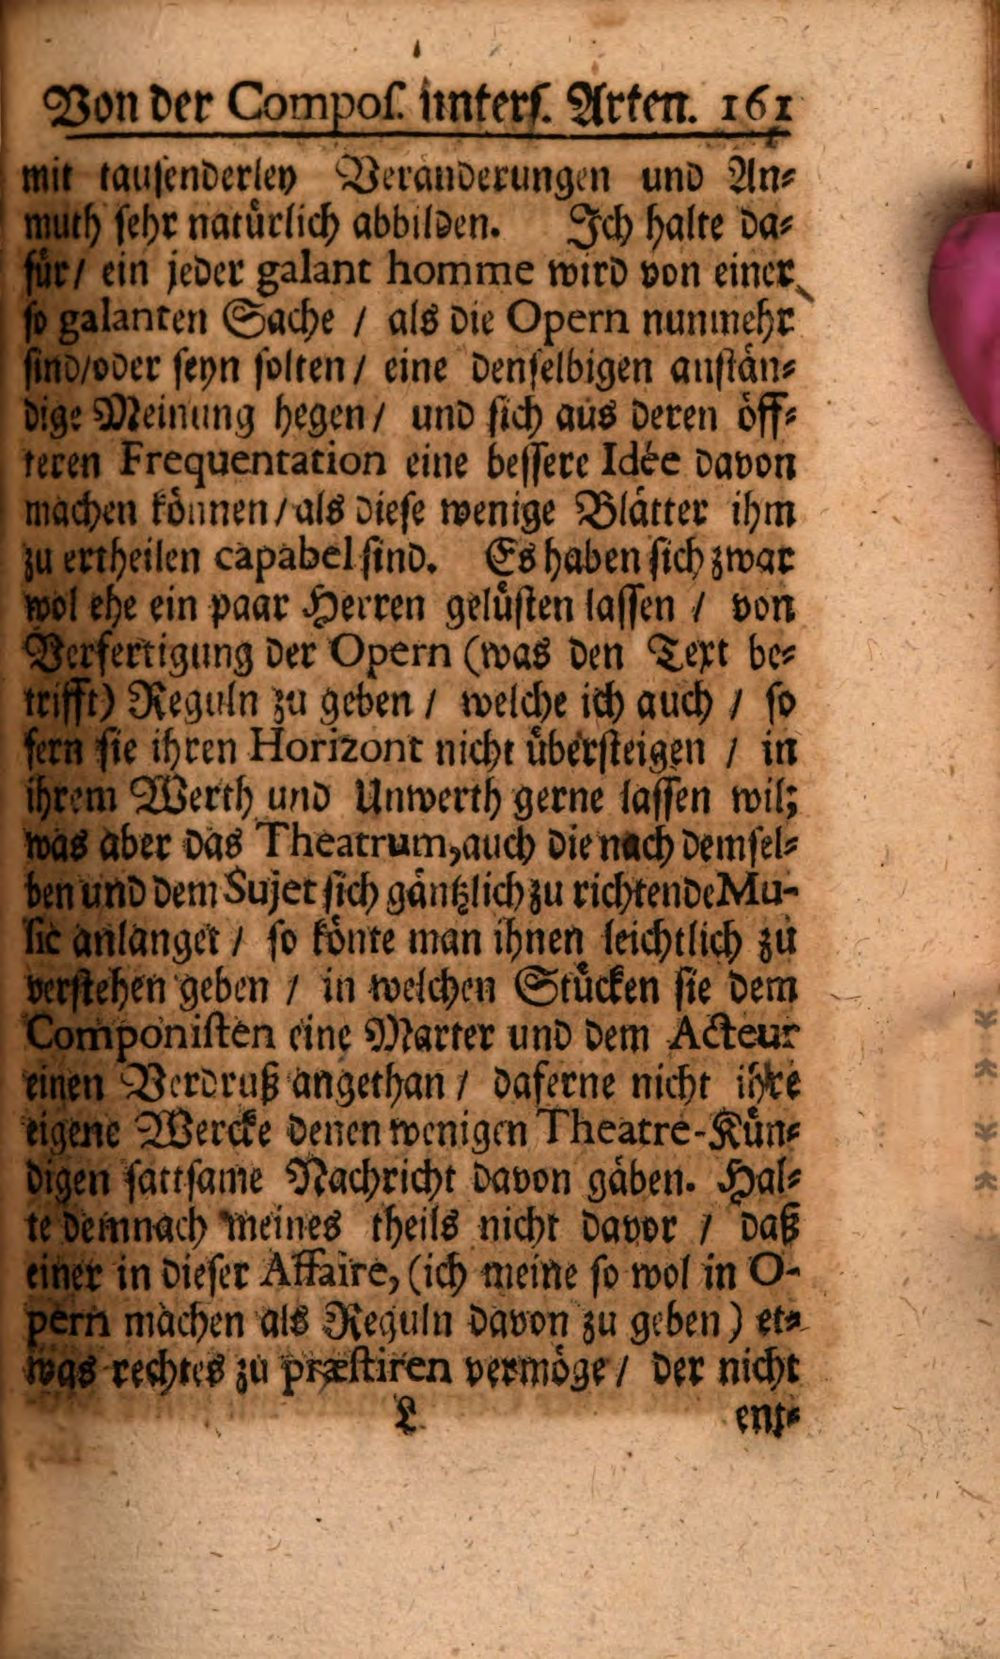 Von der Compos. unters. Arten. 161
mit tausenderley Veränderungen und An-
muth sehr natürlich abbilden. Ich halte da-
für / ein jeder galant homme wird von einer
so galanten Sache / als die Opern nunmehr
sind / oder seyn solten / eine denselbigen anstän-
dige Meinung hegen / und sich aus deren öff-
teren Frequentation eine bessere Idée davon
machen können / als diese wenige Blätter ihm
zu ertheilen capabel sind. Es haben sich zwar
wol ehe ein paar Herren gelüsten lassen / von
Verfertigung der Opern (was den Text be-
trifft) Reguln zu geben / welche ich auch / so
fern sie ihren Horizont nicht übersteigen / in
ihrem Werth und Unwerth gerne lassen wil;
was aber das Theatrum, auch die nach demsel-
ben und dem Sujet sich gäntzlich zu richtende Mu-
sic anlanget / so könte man ihnen leichtlich zu
verstehen geben / in welchen Stücken sie dem
Componisten eine Marter und dem Acteur
einen Verdruß angethan / daferne nicht ihre
eigene Wercke denen wenigen Theatre-Kün-
digen sattsame Nachricht davon gäben. Hal-
te demnach meines theils nicht davor / daß
einer in dieser Affaire, (ich meine so wol in O-
pern machen als Reguln davon zu geben) et-
was rechtes zu præstiren vermöge / der nicht
L ent-